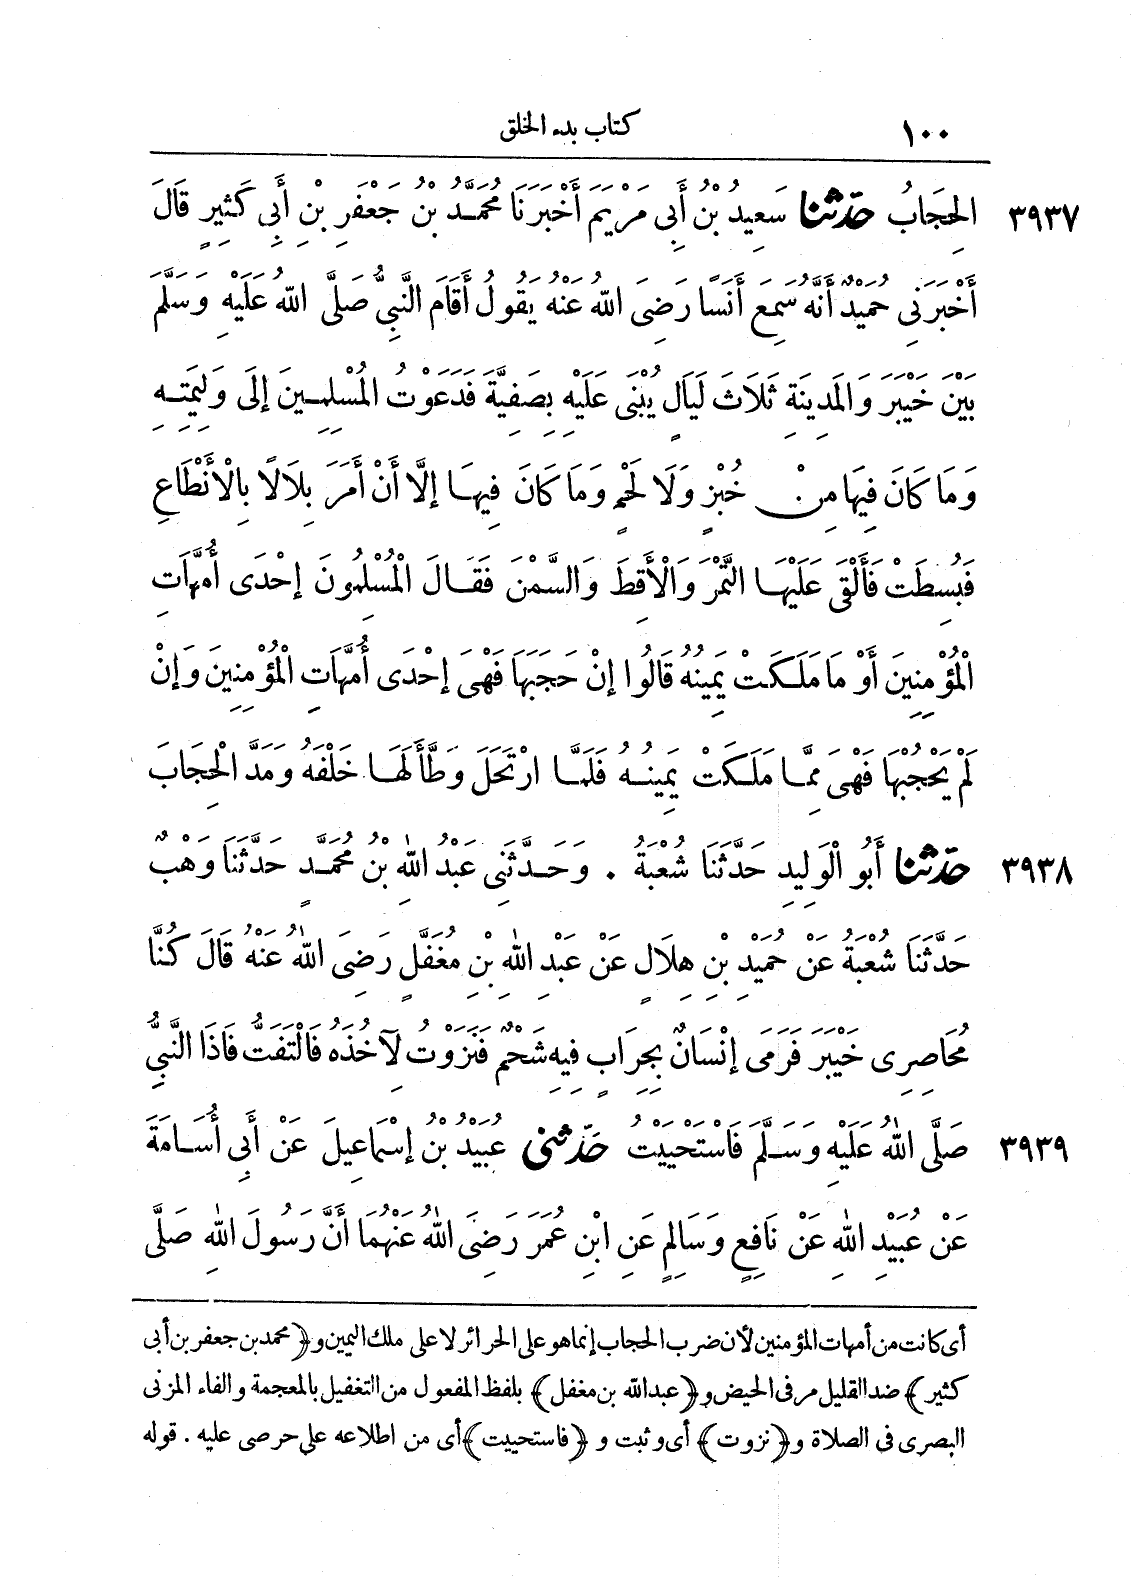 ١٠٠ كتاب بدء الخلق
٣٩٣٧ الْحِجَابُ حَدَّثَنَا سَعِيدُ بْنُ أَبِى مَرْيَمَ أَخْبَرَنَا مُحَمَّدُ بْنُ جَعْفَرِ بْنِ أَبِى كَثِيرٍ قَالَ
أَخْبَرَنِى حُمَيْدٌ أَنَّهُ سَمِعَ أَنَسًا رَضِىَ اللهُ عَنْهُ يَقُولُ أَقَامَ النَّبِىُّ صَلَّى اللهُ عَلَيْهِ وَسَلَّمَ
بَيْنَ خَيْبَرَ وَالْمَدِينَةِ ثَلَاثَ لَيَالٍ يُبْنَى عَلَيْهِ بِصَفِيَّةَ فَدَعَوْتُ الْمُسْلِمِينَ إِلَى وَلِيمَتِهِ
وَمَا كَانَ فِيهَا مِنْ خُبْزٍ وَلَا لَحْمٍ وَمَا كَانَ فِيهَا إِلَّا أَنْ أَمَرَ بِلَالًا بِالْأَنْطَاعِ
فَبُسِطَتْ فَأَلْقَى عَلَيْهَا التَّمْرَ وَالْأَقِطَ وَالسَّمْنَ فَقَالَ الْمُسْلِمُونَ إِحْدَى أُمَّهَاتِ
الْمُؤْمِنِينَ أَوْ مَا مَلَكَتْ يَمِينُهُ قَالُوا إِنْ حَجَبَهَا فَهْىَ إِحْدَى أُمَّهَاتِ الْمُؤْمِنِينَ وَإِنْ
لَمْ يَحْجُبْهَا فَهْىَ مِمَّا مَلَكَتْ يَمِينُهُ فَلَمَّا ارْتَحَلَ وَطَّأَ لَهَا خَلْفَهُ وَمَدَّ الْحِجَابَ
٣٩٣٨ حَدَّثَنَا أَبُو الْوَلِيدِ حَدَّثَنَا شُعْبَةُ . وَحَدَّثَنِى عَبْدُ اللهِ بْنُ مُحَمَّدٍ حَدَّثَنَا وَهْبٌ
حَدَّثَنَا شُعْبَةُ عَنْ حُمَيْدِ بْنِ هِلَالٍ عَنْ عَبْدِ اللهِ بْنِ مُغَفَّلٍ رَضِىَ اللهُ عَنْهُ قَالَ كُنَّا
مُحَاصِرِى خَيْبَرَ فَرَمَى إِنْسَانٌ بِجِرَابٍ فِيهِ شَحْمٌ فَنَزَوْتُ لِآخُذَهُ فَالْتَفَتُّ فَاذَا النَّبِىُّ
٣٩٣٩ صَلَّى اللهُ عَلَيْهِ وَسَلَّمَ فَاسْتَحْيَيْتُ حَدَّثَنِى عُبَيْدُ بْنُ إِسْمَاعِيلَ عَنْ أَبِى أُسَامَةَ
عَنْ عُبَيْدِ اللهِ عَنْ نَافِعٍ وَسَالِمٍ عَنِ ابْنِ عُمَرَ رَضِىَ اللهُ عَنْهُمَا أَنَّ رَسُولَ اللهِ صَلَّى
أى كانت من أمهات المؤمنين لأن ضرب الحجاب إنما هو على الحرائر لا على ملك اليمين و ﴿محمد بن جعفر بن أبى
كثير﴾ ضد القليل مر فى الحيض و ﴿عبد الله بن مغفل﴾ بلفظ المفعول من التغفيل بالمعجمة والفاء المزنى
البصرى فى الصلاة و ﴿نزوت﴾ أى وثبت و ﴿فاستحييت﴾ أى من اطلاعه على حرصى عليه . قوله